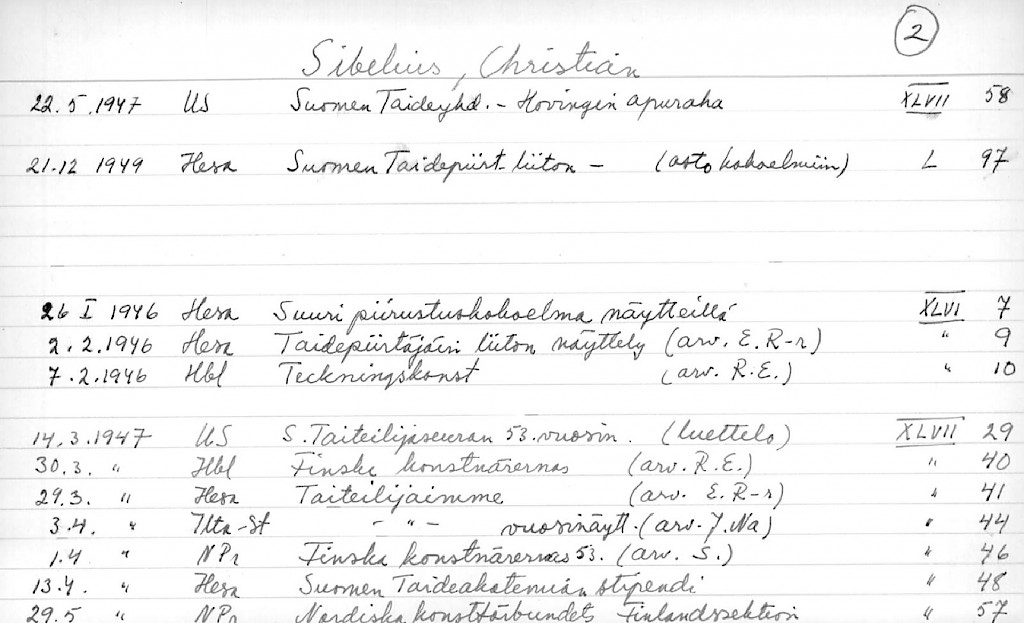 2
Sibelius, Christian
22.5.1947 US Suomen Taideyhd. - Hovingin apuraha XLVII 58
21.12 1949 Hesa Suomen Taidepiirt. liiton - (osto kokoelmiin) L 97
26 I 1946 Hesa Suuri piirustuskokoelma näytteillä XLVI 7
2.2.1946 Hesa Taidepiirtäjäin liiton näyttely (arv. E.R-r) " 9
7.2.1946 Hbl Teckningskonst (arv. R.E.) " 10
14.3.1947 US S.Taiteilijaseuran 53.vuosin. (luettelo) XLVII 29
30.3. " Hbl Finska konstnärernas (arv. R.E.) " 40
29.3. " Hesa Taiteilijaimme (arv. E.R-r) " 41
3.4. " Ilta-St - " - vuosinäytt. (arv. J.Na) " 44
1.4 " NPr Finska konstnärernas 53. (arv. S.) " 46
13.4. " Hesa Suomen Taideakatemian stipendi " 48
29.5 " NPr Nordiska konstförbundets Finlandssektion " 57